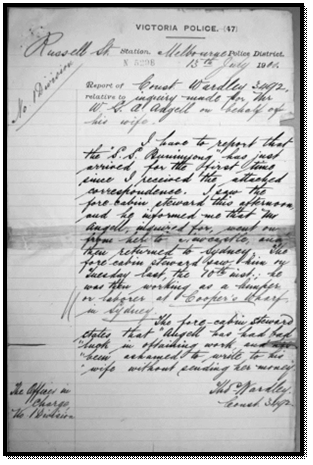 VICTORIA POLICE. (47)
Russell St. Station, Melbourne Police District.
No 1 Division
N 5208
13th July 1901.
Report of Const Wardley 3492
relative to inquiry made for Mr
W. G. A. Adgell on behalf of
his wife.
I have to report that
the "S.S. Buninyong" has just
arrived for the first time
since I received the attached
correspondence. I saw the
fore-cabin steward this afternoon
and he informed me that Mr
Angell, inquired for, went on
from here to Newcastle, and
then returned to Sydney. The
fore cabin steward saw him on
Tuesday last, the 10th inst; he
was then working as a lumper
or laborer at Cooper's Wharf
in Sydney
The fore-cabin steward
states that "Angell has had bad
"luck in obtaining work, and
"been ashamed to write to his
"wife without sending her money
Thos Wardley
Const 3492
The Officer in
Charge
No 1 Division